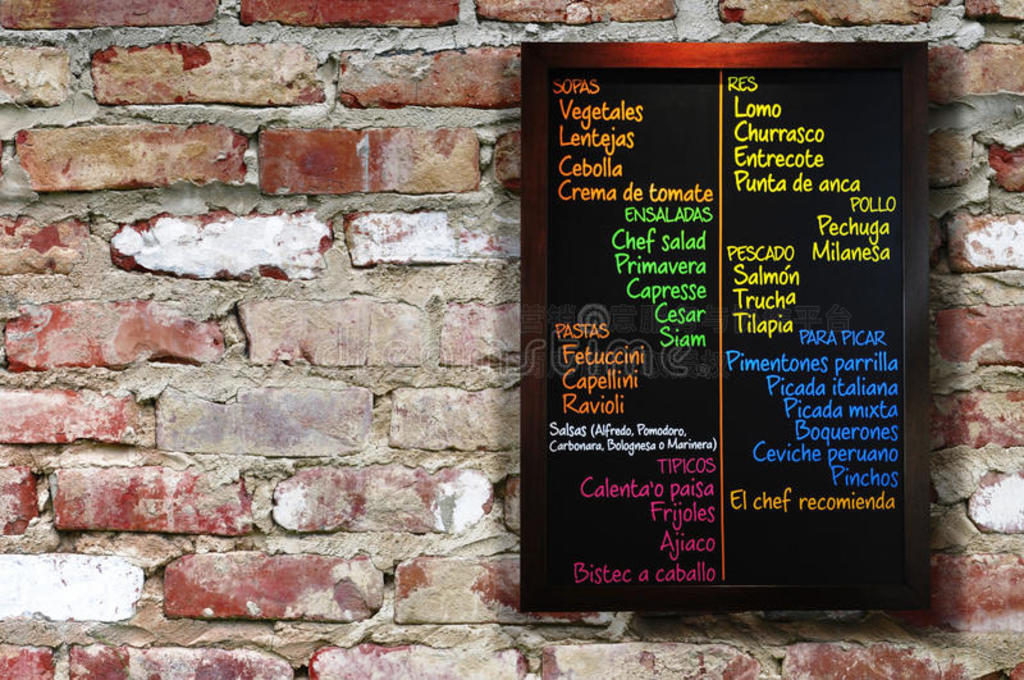 SOPAS
Vegetales
Lentejas
Cebolla
Crema de tomate
ENSALADAS
Chef salad
Primavera
Capresse
Cesar
Siam
PASTAS
Fetuccini
Capellini
Ravioli
Salsas (Alfredo, Pomodoro,
Carbonara, Bolognesa o Marinera)
TIPICOS
Calenta'o paisa
Frijoles
Ajiaco
Bistec a caballo
RES
Lomo
Churrasco
Entrecote
Punta de anca
POLLO
Pechuga
Milanesa
PESCADO
Salmón
Trucha
Tilapia
PARA PICAR
Pimentones parrilla
Picada italiana
Picada mixta
Boquerones
Ceviche peruano
Pinchos
El chef recomienda